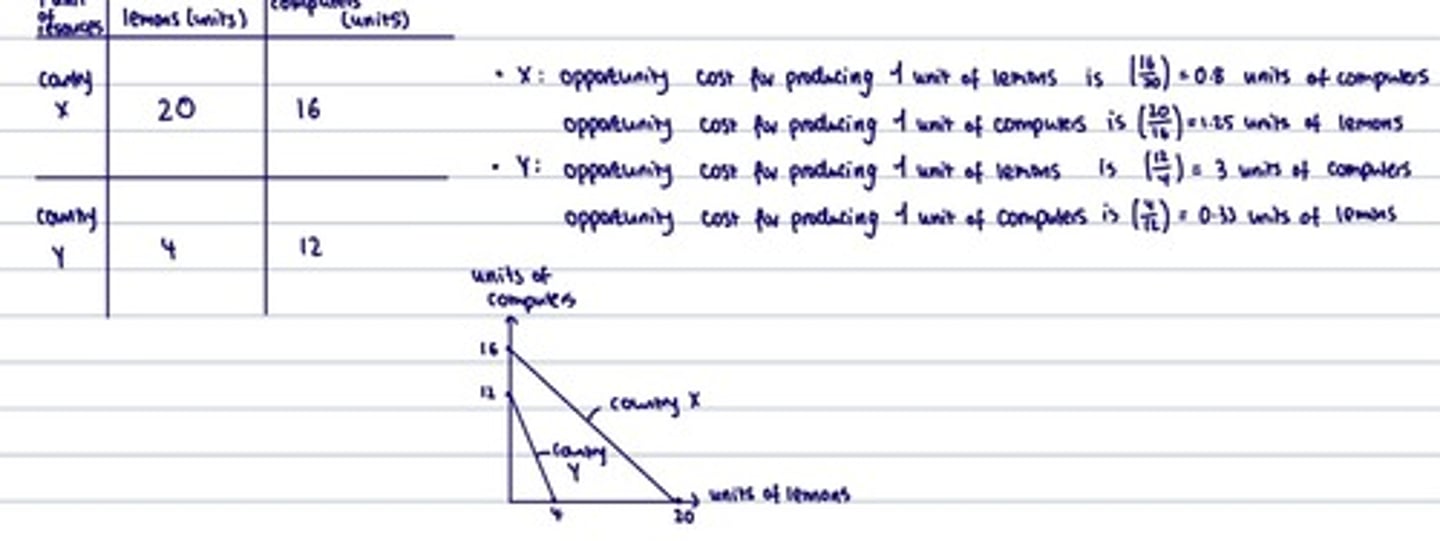 of
resources
lemons (units)
computers
(units)
country
X
20
16
country
Y
4
12
• X: opportunity cost for producing 1 unit of lemons is (16/20) = 0.8 units of computers
opportunity cost for producing 1 unit of computers is (20/16) = 1.25 units of lemons
• Y: opportunity cost for producing 1 unit of lemons is (12/4) = 3 units of computers
opportunity cost for producing 1 unit of computers is (4/12) = 0.33 units of lemons
units of
computers
16
12
country X
country
Y
4
20
units of lemons